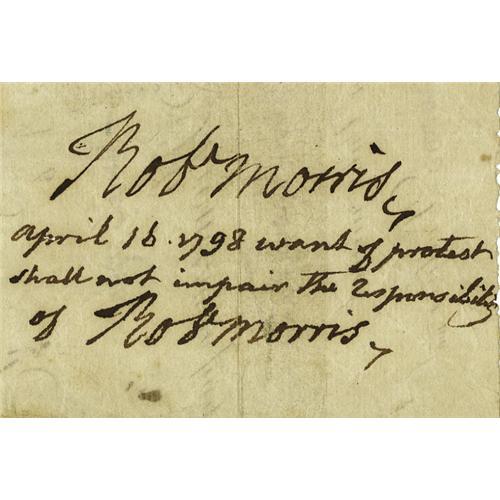 Robt Morris,
april 16. 1798 want of protest
shall not impair the responsibility
of Robt Morris,